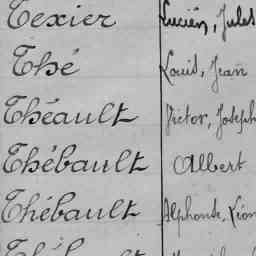 Texier Lucien, Jules
Thé Louis, Jean
Théault Victor, Joseph
Thébault Albert
Thébault Alphonse, Léon